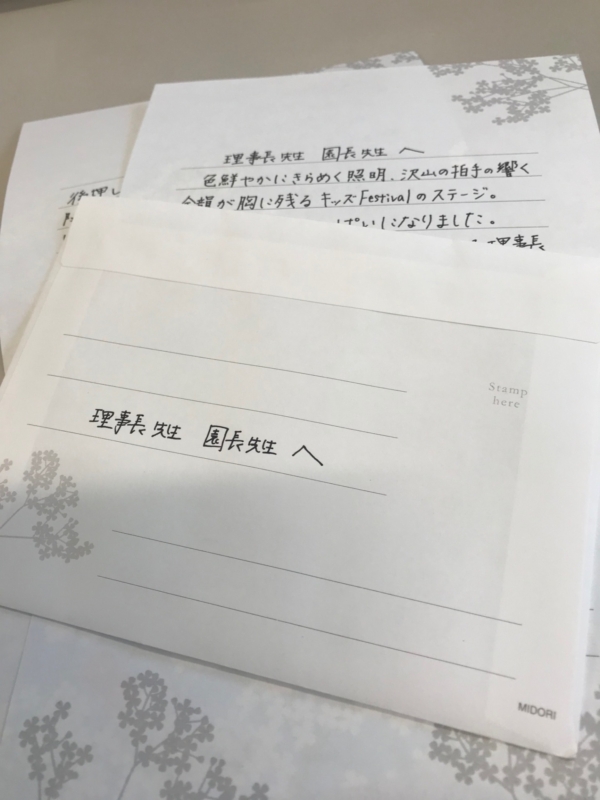 理事長先生 園長先生 へ
色鮮やかにきらめく照明、沢山の拍手の響く
会場が胸に残る キッズFestivalのステージ。
ぱいになりました。
理事長
後押し
Stamp
here
理事長先生 園長先生 へ
MIDORI